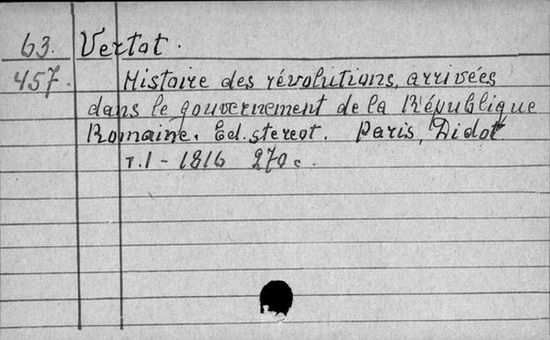 63. Vertot.
457. Histoire des révolutions, arrivées
dans le gouvernement de la République
Romaine. Ed. stereot. Paris, Didot
т.I - 1816 270 c.